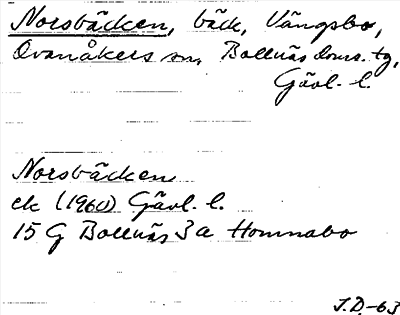 Norsbäcken, bäck, Vängsbo,
Ovanåkers sn, Bollnäs doms. tg,
Gävl. l.
Norsbäcken
ek (1960) Gävl. l.
15 G Bollnäs 3 a Homnabo
J.D.-63